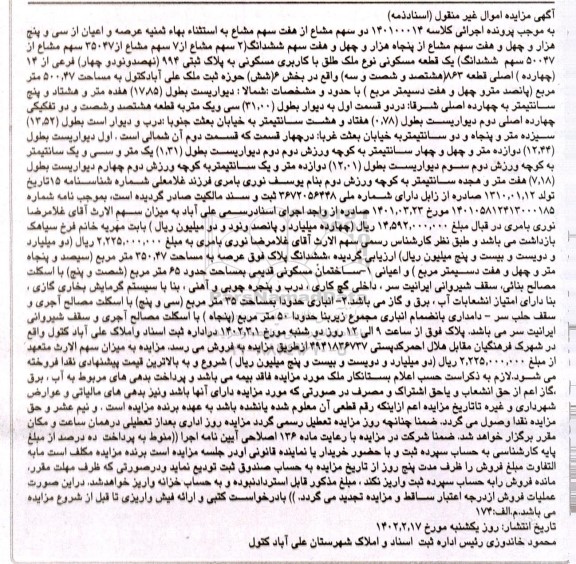 آگهی مزایده اموال غیر منقول (اسنادذمه)
به موجب پرونده اجرائی کلاسه ۱۴۰۱۰۰۰۱۴ دو سهم مشاع از هفت سهم مشاع به استثناء بهاء ثمنیه عرصه و اعیان از سی و پنج
هزار و چهل و هفت سهم مشاع از پنجاه هزار و چهل و هفت سهم ششدانگ(۲ سهم مشاع از۷ سهم مشاع از۳۵۰۴۷ سهم مشاع از
۵۰۰۴۷ سهم ششدانگ) یک قطعه مسکونی نوع ملک طلق با کاربری مسکونی به پلاک ثبتی ۹۹۴ (نهصدونودو چهار) فرعی از ۱۴
(چهارده ) اصلی قطعه ۸۶۳(هشتصد و شصت و سه) واقع در بخش ۶(شش) حوزه ثبت ملک علی آبادکتول به مساحت ۵۰۰.۴۷ متر
مربع (پانصد مترو چهل و هفت دسیمتر مربع ) با حدود و مشخصات :شمالا : دیواریست بطول (۱۷.۸۵) هفده متر و هشتاد و پنج
سانتیمتر به چهارده اصلی شرقا: دردو قسمت اول به دیوار بطول (۳۱.۰۰) سی ویک متربه قطعه هشتصد وشصت و دو تفکیکی
چهارده اصلی دوم دیواریست بطول (۰.۷۸) هفتاد و هشت سانتیمتر به خیابان بعثت جنوبا :درب و دیوار است بطول (۱۳.۵۲)
سیزده متر و پنجاه و دو سانتیمتربه خیابان بعثت غربا: درچهار قسمت که قسمت دوم آن شمالی است . اول دیواریست بطول
(۱۲.۴۴) دوازده متر و چهل و چهار سانتیمتر به کوچه ورزش دوم دوم دیواریست بطول (۱.۳۱) یک متر و سی و یک سانتیمتر
به کوچه ورزش دوم سوم دیواریست بطول (۱۲.۰۱) دوازده متر و یک سانتیمتربه کوچه ورزش دوم چهارم دیواریست بطول
(۷.۱۸) هفت متر و هجده سانتیمتر به کوچه ورزش دوم بنام یوسف نوری بامری فرزند غلامعلی شماره شناسنامه ۱۵تاریخ
تولد ۱۳۱۰.۰۱.۱۲ صادره از زابل دارای شماره ملی ۳۶۷۲۰۵۶۴۴۸ ثبت و سند مالکیت صادر گردیده است، بموجب نامه شماره
۱۴۰۱۰۵۸۱۲۴۱۳۰۰۰۱۸۵ مورخ ۱۴۰۱.۰۳.۲۳ صادره ازواحد اجرای اسنادرسمی علی آباد به میزان سهم الارث آقای غلامرضا
نوری بامری در قبال مبلغ ۱۴.۵۹۲.۰۰۰.۰۰۰ ریال (چهارده میلیارد و پانصد ونود و دو میلیون ریال ) بابت مهریه خانم فرخ سیاهک
بازداشت می باشد و طبق نظر کارشناس رسمی سهم الارث آقای غلامرضا نوری بامری به مبلغ ۲.۲۲۵.۰۰۰.۰۰۰ ریال (دو میلیارد
و دویست و بیست و پنج میلیون ریال) ارزیابی گردیده ،ششدانگ پلاک فوق عرصه با مساحت ۳۵۰.۴۷ متر مربع (سیصد و پنجاه
متر و چهل و هفت دسیمتر مربع ) و اعیانی ۱-ساختمان مسکونی قدیمی بمساحت حدود ۶۵ متر مربع (شصت و پنج) با اسکلت
مصالح بنائی، سقف شیروانی ایرانیت سر ، داخلی گچ کاری ، درب و پنجره چوبی و آهنی ، بنا با سیستم گرمایش بخاری گازی ،
بنا دارای امتیاز انشعابات آب ، برق و گاز می باشد۲- انباری حدودا بمساحت ۳۵ متر مربع (سی و پنج) با اسکلت مصالح آجری و
سقف حلب سر - دامداری بانضمام انباری مجموع زیربنا حدودا ۵۰ متر مربع (پنجاه ) با اسکلت مصالح آجری و سقف شیروانی
ایرانیت سر می باشد. پلاک فوق از ساعت ۹ الی ۱۲ روز دو شنبه مورخ ۱۴۰۲.۳.۱ دراداره ثبت اسناد واملاک علی آباد کتول واقع
در شهرک فرهنگیان مقابل هلال احمرکدپستی ۴۹۴۱۸۳۶۷۳۷ ازطریق مزایده به فروش می رسد. مزایده به میزان سهم الارث متعهد
از مبلغ ۲.۲۲۵.۰۰۰.۰۰۰ ریال (دو میلیارد و دویست و بیست و پنج میلیون ریال ) شروع و به بالاترین قیمت پیشنهادی نقدا فروخته
می شود.لازم به ذکراست حسب اعلام بستانکار ملک مورد مزایده فاقد بیمه می باشد و پرداخت بدهی های مربوط به آب ، برق
،گاز اعم از حق انشعاب و یاحق اشتراک و مصرف در صورتی که مورد مزایده دارای آنها باشد ونیز بدهی های مالیاتی و عوارض
شهرداری و غیره تاتاریخ مزایده اعم ازاینکه رقم قطعی آن معلوم شده یانشده باشد به عهده برنده مزایده است . و نیم عشر و حق
مزایده نقدا وصول می گردد. ضمنا چنانچه روز مزایده تعطیل رسمی گردد مزایده روز اداری بعداز تعطیلی درهمان ساعت و مکان
مقرر برگزار خواهد شد. ضمنا شرکت در مزایده با رعایت ماده ۱۳۶ اصلاحی آیین نامه اجرا ((منوط به پرداخت ده درصد از مبلغ
پایه کارشناسی به حساب سپرده ثبت و با حضور خریدار یا نماینده قانونی اودر جلسه مزایده است برنده مزایده مکلف است مابه
التفاوت مبلغ فروش را ظرف مدت پنج روز از تاریخ مزایده به حساب صندوق ثبت تودیع نماید ودرصورتی که ظرف مهلت مقرر،
مانده فروش رابه حساب سپرده ثبت واریز نکند ، مبلغ مذکور قابل استردادنبوده و به حساب خزانه واریز خواهدشد. دراین صورت
عملیات فروش ازدرجه اعتبار ساقط و مزایده تجدید می گردد. )) بادرخواست کتبی و ارائه فیش واریزی تا قبل از شروع مزایده
می باشد.م.الف:۱۷۴
تاریخ انتشار: روز یکشنبه مورخ ۱۴۰۲.۲.۱۷
محمود خاندوزی رئیس اداره ثبت اسناد و املاک شهرستان علی آباد کتول